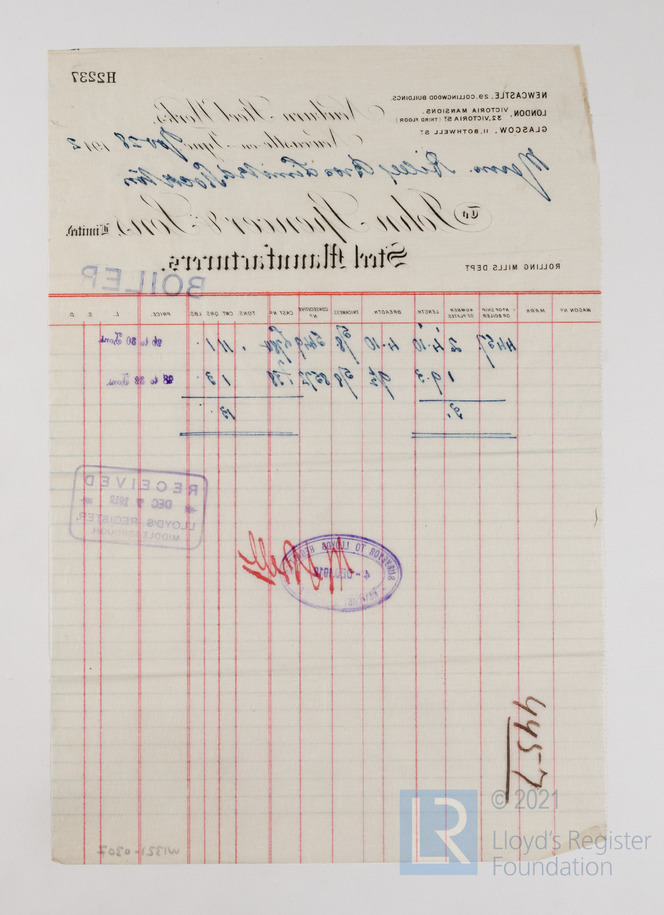 H2237
NEWCASTLE, 29, COLLINGWOOD BUILDINGS.
LONDON, VICTORIA MANSIONS,
32, VICTORIA ST (THIRD FLOOR)
GLASGOW, 11, BOTHWELL ST
Newburn Steel Works,
Newcastle-on-Tyne, Nov 28 1912
Messrs. Riley Bros Limited Stockton
To John Spencer & Sons, Limited,
Steel Manufacturers.
ROLLING MILLS DEPT
BOILER
WAGON NO MARK NO OF SHIP OR BOILER NUMBER OF PLATES LENGTH BREADTH THICKNESS CONSECUTIVE NO CAST NO TONS CWT QRS LBS PRICE. L S D
4457 2 4.10 4.10 5/8 11 26 to 30 Tons
1 9.3 5/8 1 3 28 to 32 Tons
3
RECEIVED
DEC 7 1912
LLOYD'S REGISTER,
MIDDLESBROUGH.
SURVEYOR TO LLOYDS
4-DEC 1912
4457
W1321-0307
© 2021
LR Lloyd's Register
Foundation